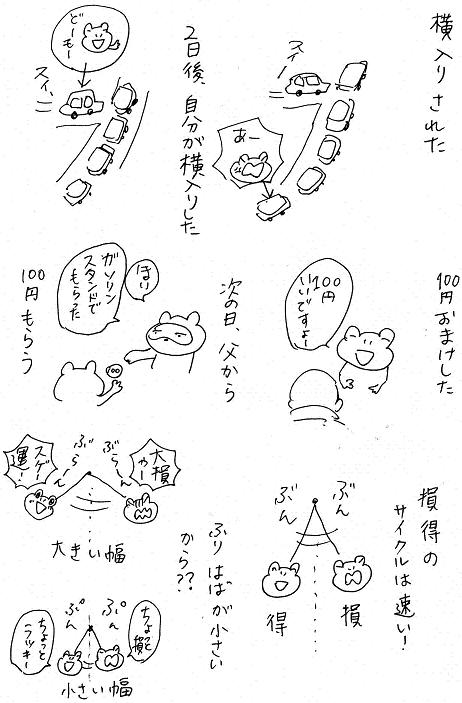 横入りされた
スイー
あー
2日後、自分が横入りした
どーもー
スイ、
100円おまけした
100円
いいですよー
次の日、父から
ほり
ガソリン
スタンドで
もらった
100
100円もらう
損得の
サイクルは速い！
ぶん
ぶん
損
得
ふりはばが小さい
から??
大損
やー
ぶらん
ぶらん
スゲー
運！
大きい幅
ちょっと
損
ぷん
ぷん
ちょっと
ラッキー
小さい幅